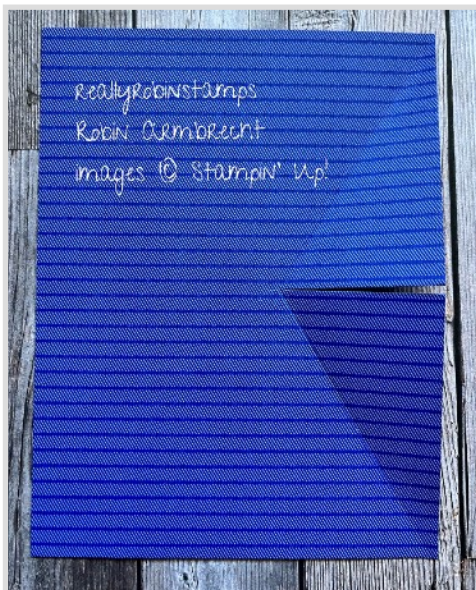 ReallyRobinstamps
Robin Armbrecht
images © Stampin' Up!